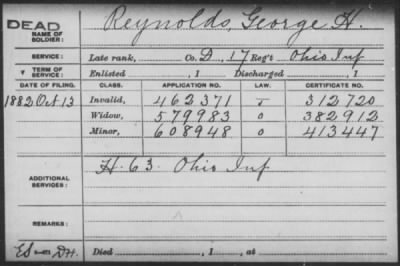 DEAD
NAME OF SOLDIER: Reynolds, George H.
SERVICE: Late rank, Co. D, 17 Reg't Ohio Inf
TERM OF SERVICE: Enlisted , 1 Discharged , 1
DATE OF FILING. CLASS. APPLICATION NO. LAW. CERTIFICATE NO.
1882 Oct 13 Invalid, 462371 312720
Widow, 579983 0 382912
Minor, 608948 0 413447
ADDITIONAL SERVICES: H. 63. Ohio Inf
REMARKS:
Died , 1 , at